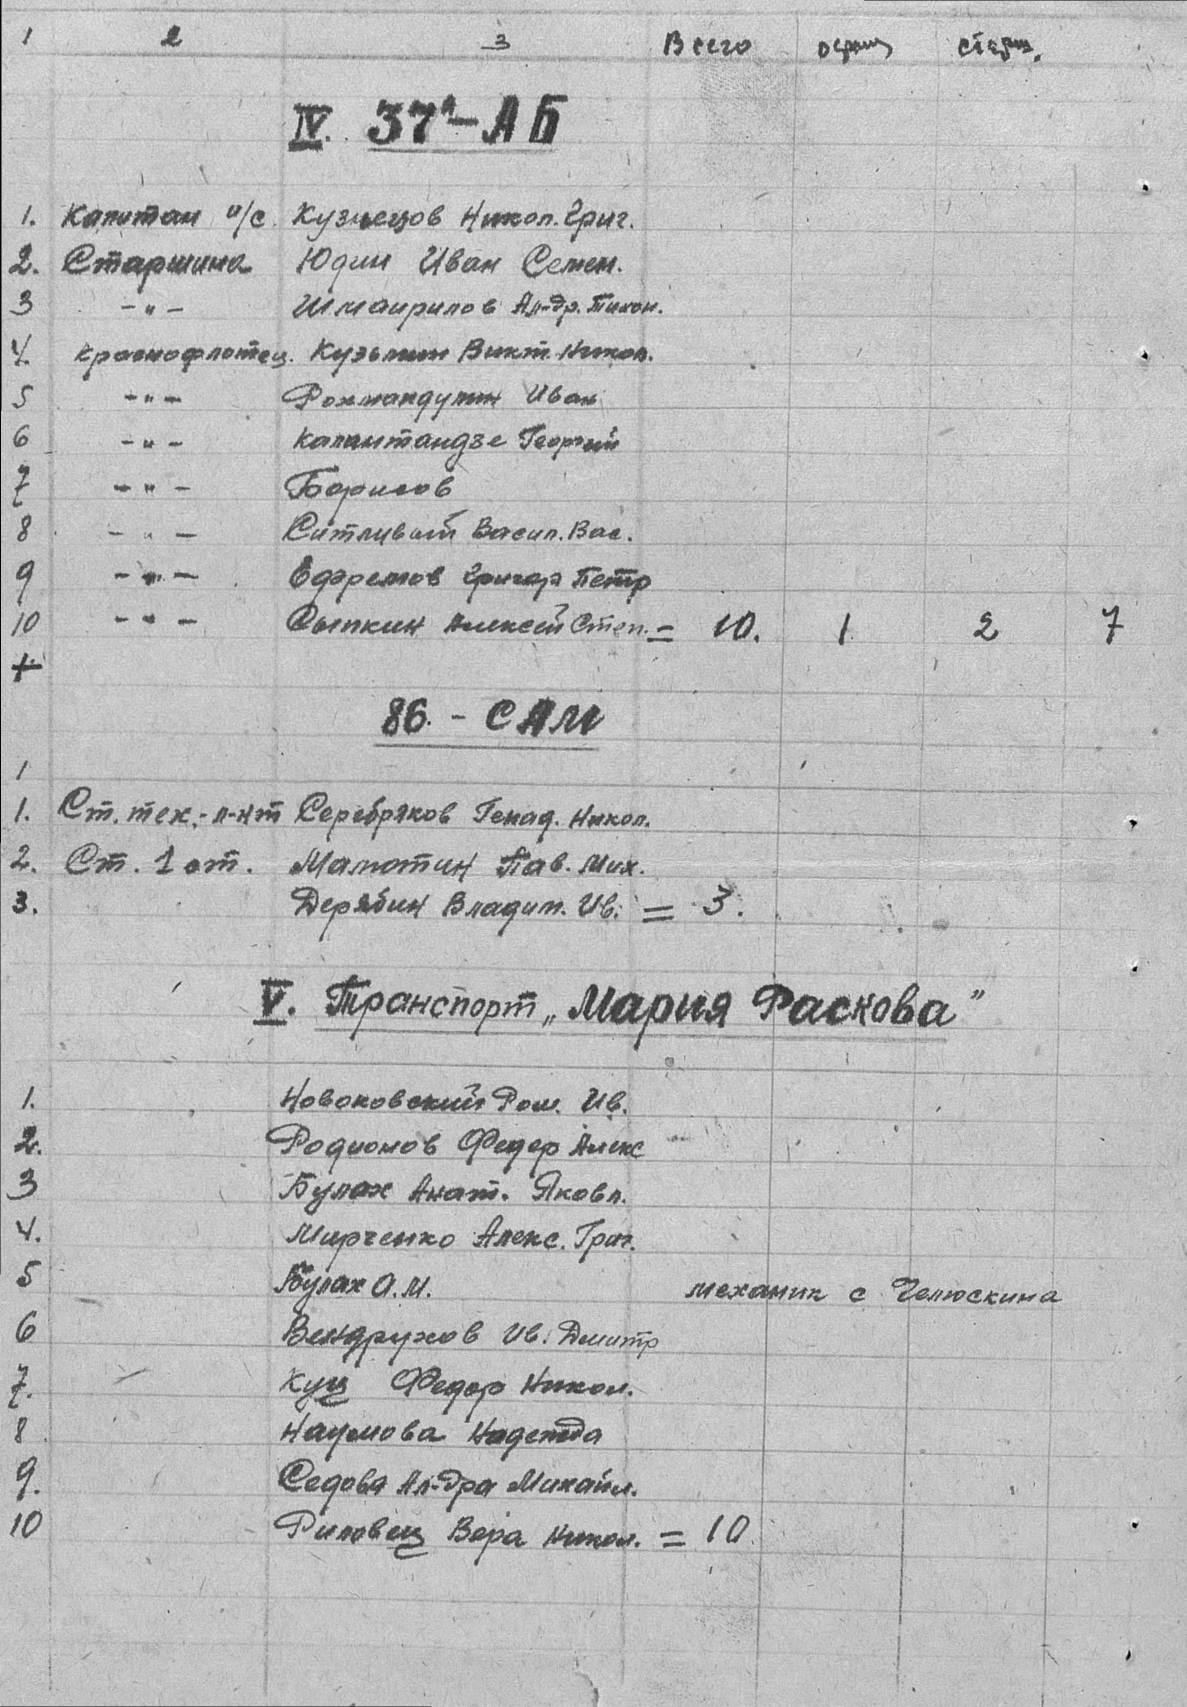 1 2 3 Всего офиц старш.
IV. 37й-АБ
1. Капитан и/с Кузнецов Никол. Григ.
2. Старшина Юдин Иван Семен.
3 -"- Ал-др. Тихон.
4. Краснофлотец. Кузьмин Викт. Никол.
5 -"- Рохмандулин Иван
6 -"- Калантандзе Георгий
7 -"- Борисов
8 -"- Ситливый Васил. Вас.
9 -"- Ефремов Григор Петр
10 -"- Сыпкин Алексей Степ. = 10. 1 2 7
+
86. - САМ
1
1. Ст. тех.-л-нт Серебряков Генад. Никол.
2. Ст. 1 ст. Малютин Пав. Мих.
3. Дерябин Владим. Ив. = 3.
V. Транспорт „Мария Раскова"
1. Новоковский Ром. Ив.
2. Родионов Федор Алекс
3 Булах Анат. Яковл.
4. Мирченко Алекс. Григ.
5 Булах О.М. механик с Челюскина
6 Вендрухов Ив. Дмитр
7. Куц Федор Никол.
8 Наумова Надежда
9. Седова Ал-дра Михайл.
10 Риловец Вера Никол. = 10